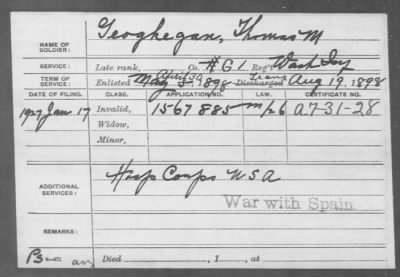 NAME OF SOLDIER: Geoghegan, Thomas M
SERVICE: Late rank, Co. #G 1 Reg't Wash Inf
TERM OF SERVICE: Enlisted May 5, 1898 April 30 Discharged Trans Aug 19, 1898
DATE OF FILING. CLASS. APPLICATION NO. LAW. CERTIFICATE NO.
1927 Jan 17 Invalid, 1567885 A-7-31-28
Widow,
Minor,
ADDITIONAL SERVICES: Hosp Corps USA
War with Spain
REMARKS:
Died , 1 , at